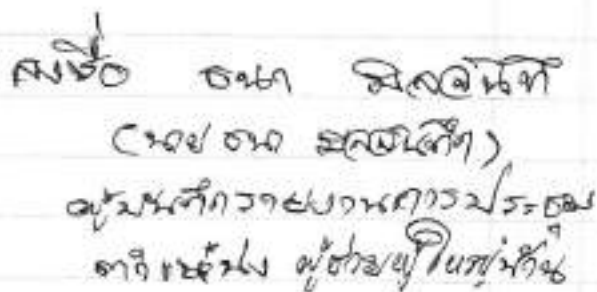 ลงชื่อ ธนา
(นาย ธนา
ผู้บันทึกรายงานการประชุม
ตำแหน่ง ผู้ช่วยผู้ใหญ่บ้าน